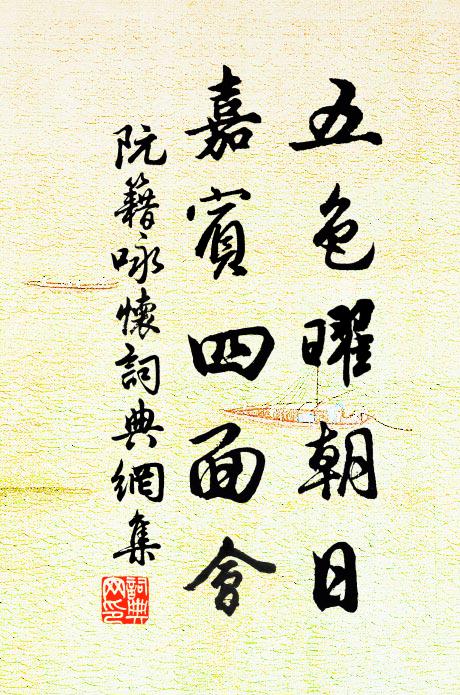 五色曜朝日
嘉賓四面會
阮籍咏懷詞典網集
詞典
网印